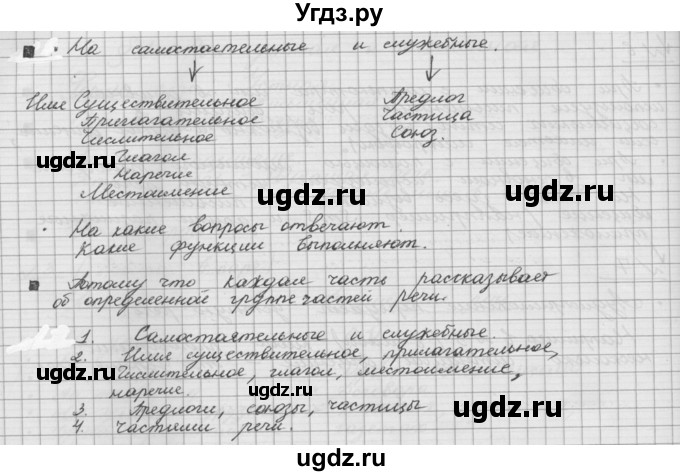 Угдз.ру
• На самостоятельные и служебные.
Имя Существительное Предлог
Прилагательное Частица
Числительное Союз.
Глагол
Наречие
Местоимение
• На какие вопросы отвечают.
Какие функции выполняют.
Потому что каждая часть рассказывает
об определенной группе частей речи.
1. Самостоятельные и служебные.
2. Имя существительное, прилагательное,
Числительное, глагол, местоимение,
наречие.
3. Предлоги, союзы, частицы
4. Частями речи.
ugdz.ru
ugdz.ru
ugdz.ru
ugdz.ru
ugdz.ru
ugdz.ru
ugdz.ru
ugdz.ru
ugdz.ru
ugdz.ru